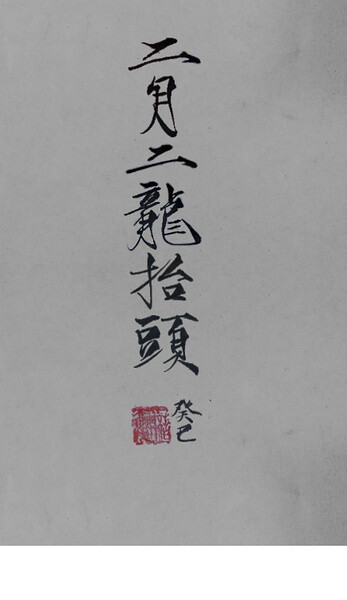 二月二龍抬頭
癸巳